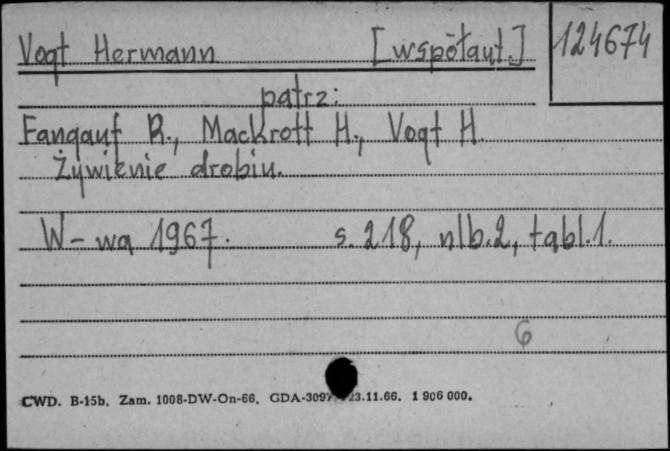 Vogt Hermann [współaut.] 124674
patrz:
Fangauf R., Mackrott H., Vogt H.
Żywienie drobiu.
W-wa 1967. s. 218, nlb. 2, tabl. 1.
6
CWD. B-15b. Zam. 1008-DW-On-66. GDA-3097 23.11.66. 1 906 000.